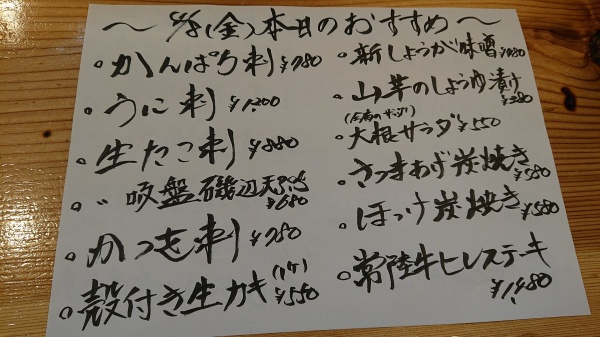 〜 6/8(金)本日のおすすめ 〜
・かんぱち刺 ¥780
・うに刺 ¥1,200
・生たこ刺 ¥880
・〃 吸盤磯辺天ぷら ¥680
・かつを刺 ¥780
・殻付き生カキ(1ケ) ¥550
・新しょうが味噌 ¥380
・山芋のしょうゆ漬け ¥380
・大根サラダ ¥550
・さつまあげ炭焼き ¥580
・ほっけ炭焼き ¥580
・常陸牛ヒレステーキ ¥1,480